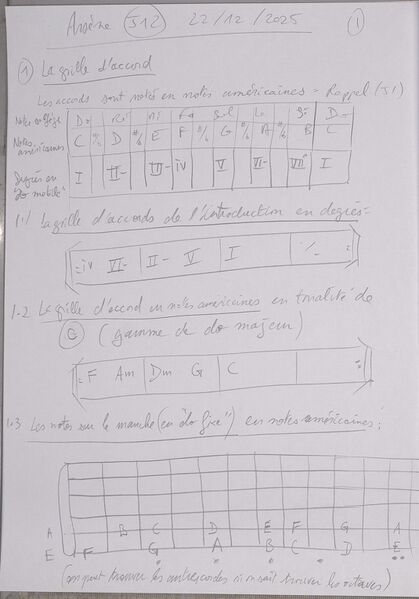 Arsène J12 22/12/2025 1
1 La grille d'accord
Les accords sont notés en notes américaines = Rappel (J1)
Notes solfège Do Ré Mi Fa Sol La Si Do
Notes américaines C #/b D #/b E F #/b G #/b A #/b B C
Degrés en "do mobile" I II- III- IV V VI- VII° I
1.1 La grille d'accords de l'introduction en degrés =
IV VI- II- V I ·/.
1.2 La grille d'accord en notes américaines en tonalité de
C (gamme de do majeur)
F Am Dm G C
1.3 Les notes sur le manche (en "do fixe") en notes américaines :
A B C D E F G A
E F G A B C D E
(on peut trouver les autres cordes si on sait trouver les octaves)